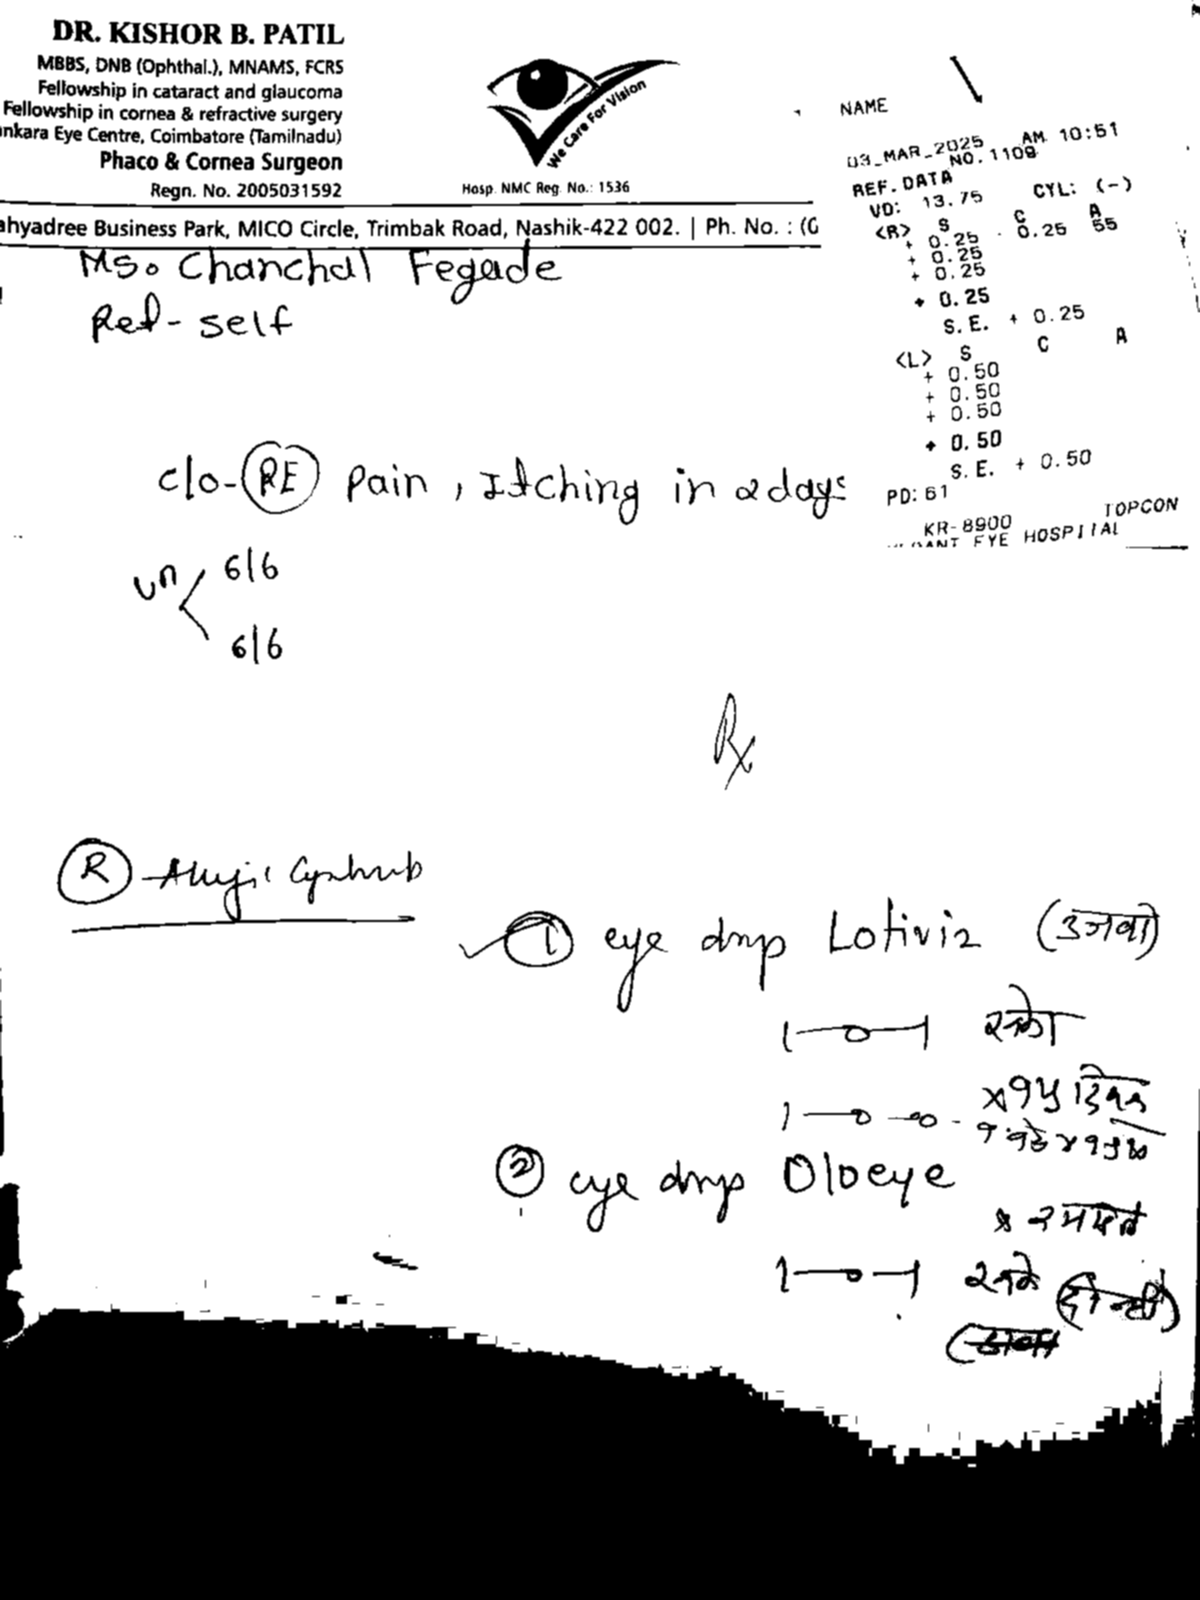 DR. KISHOR B. PATIL
MBBS, DNB (Ophthal.), MNAMS, FCRS
Fellowship in cataract and glaucoma
Fellowship in cornea & refractive surgery
ankara Eye Centre, Coimbatore (Tamilnadu)
Phaco & Cornea Surgeon
Regn. No. 2005031592
We Care For Vision
Hosp. NMC Reg. No.: 1536
ahyadree Business Park, MICO Circle, Trimbak Road, Nashik-422 002. | Ph. No. : (0
NAME
03_MAR_2025 AM 10:51
NO. 1109
REF. DATA
VD: 13.75 CYL: (-)
<R> S C A
+ 0.25 - 0.25 55
+ 0.25
+ 0.25
+ 0.25
S.E. + 0.25
<L> S C A
+ 0.50
+ 0.50
+ 0.50
+ 0.50
S.E. + 0.50
PD: 61
KR-8900 TOPCON
EYE HOSPITAL
Ms. Chanchal Fegade
Ref- self
c/o - RE pain, Itching in 2 days
un 6/6
6/6
Rx
R
1 eye drop Lotiviz (उजवा)
1—0—1
1—0—0
x १५ दिवस
2 eye drop Oloeye
1—0—1
(दोन्ही)